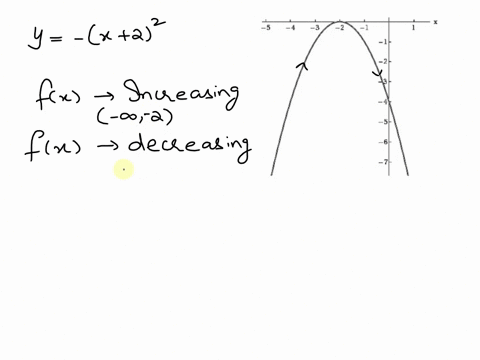 y = -(x+2)²
f(x) → Increasing
(-∞,-2)
f(x) → decreasing
-5 -4 -3 -2 -1 1 x
-1
-2
-3
-4
-5
-6
-7